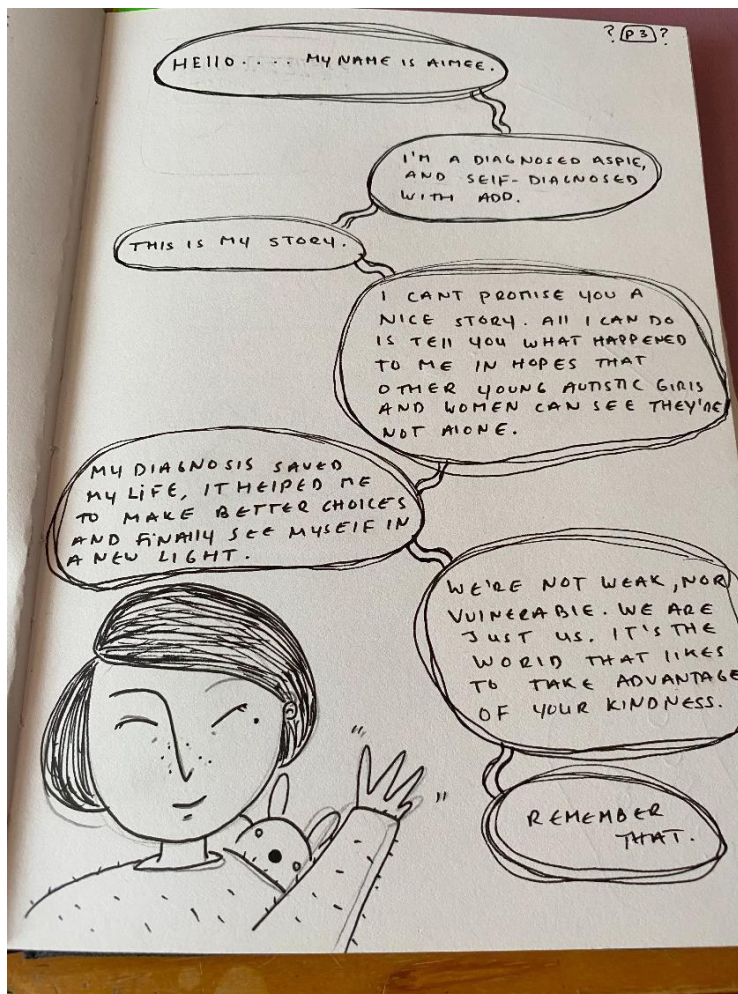 ? P3 ?
HELLO.... MY NAME IS AIMEE.
I'M A DIAGNOSED ASPIE,
AND SELF-DIAGNOSED
WITH ADD.
THIS IS MY STORY.
I CANT PROMISE YOU A
NICE STORY. ALL I CAN DO
IS TELL YOU WHAT HAPPENED
TO ME IN HOPES THAT
OTHER YOUNG AUTISTIC GIRLS
AND WOMEN CAN SEE THEY'RE
NOT ALONE.
MY DIAGNOSIS SAVED
MY LIFE, IT HELPED ME
TO MAKE BETTER CHOICES
AND FINALLY SEE MYSELF IN
A NEW LIGHT.
WE'RE NOT WEAK, NOR
VULNERABLE. WE ARE
JUST US. IT'S THE
WORLD THAT LIKES
TO TAKE ADVANTAGE
OF YOUR KINDNESS.
REMEMBER
THAT.